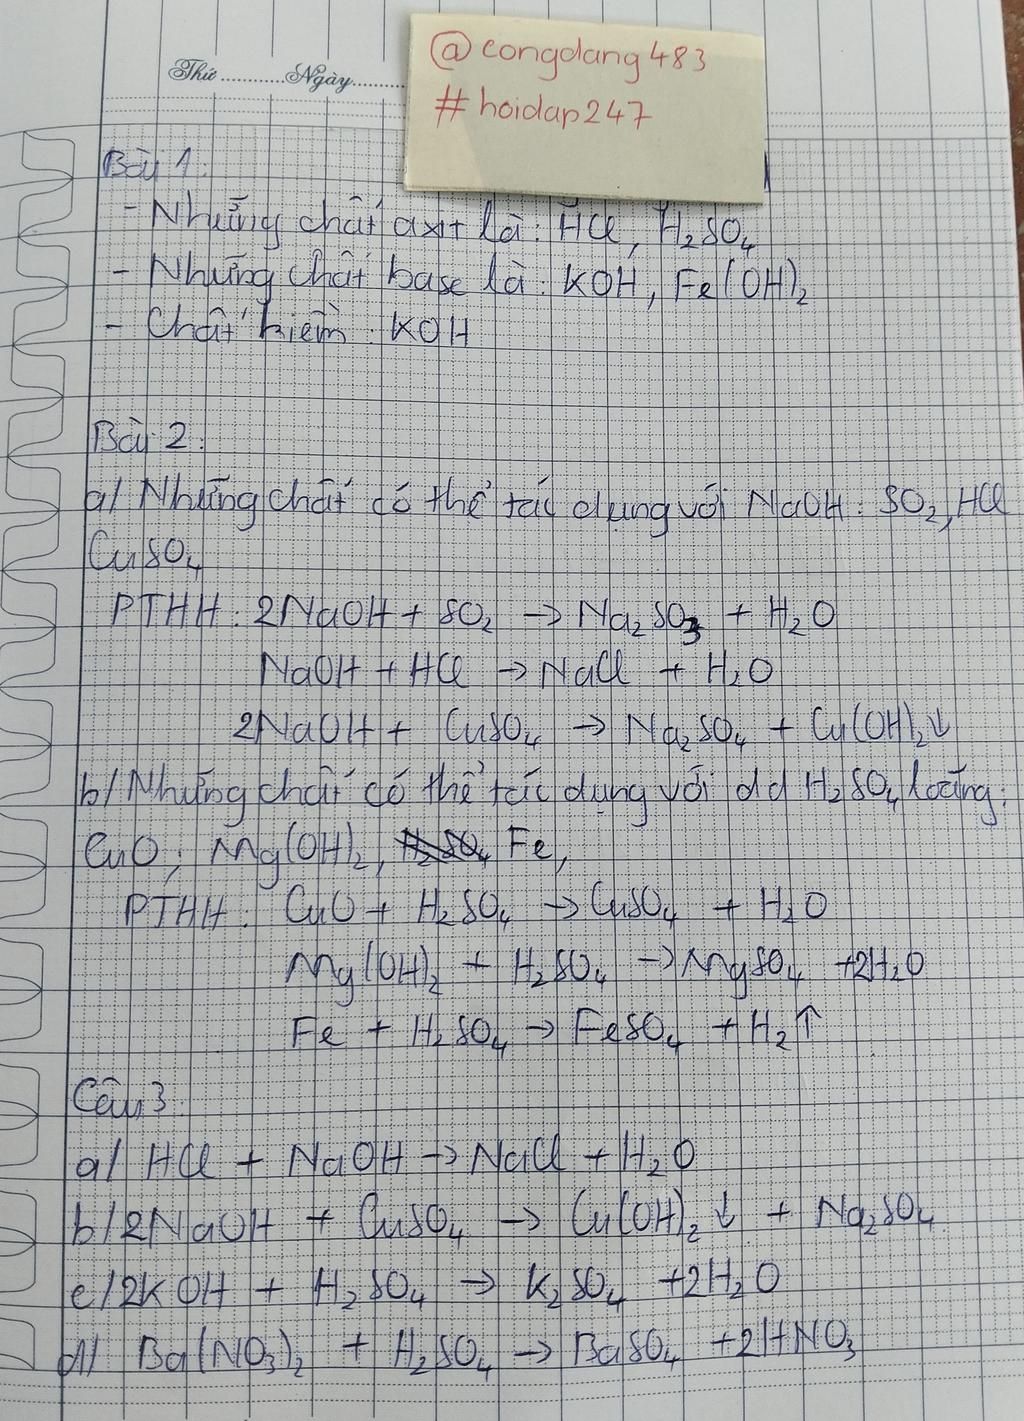 @congdang483
#hoidap247
Thứ..........Ngày..........
Bài 1:
- Những chất axit là: HCl, H₂SO₄
- Những chất base là: KOH, Fe(OH)₂
- Chất kiềm: KOH
Bài 2:
a/ Những chất có thể tác dụng với NaOH: SO₂, HCl
CuSO₄
PTHH: 2NaOH + SO₂ → Na₂SO₃ + H₂O
NaOH + HCl → NaCl + H₂O
2NaOH + CuSO₄ → Na₂SO₄ + Cu(OH)₂↓
b/ Những chất có thể tác dụng với dd H₂SO₄ loãng:
CuO; Mg(OH)₂, H₂SO₄ Fe,
PTHH: CuO + H₂SO₄ → CuSO₄ + H₂O
Mg(OH)₂ + H₂SO₄ → MgSO₄ +2H₂O
Fe + H₂SO₄ → FeSO₄ + H₂↑
Câu 3:
a/ HCl + NaOH → NaCl + H₂O
b/ 2NaOH + CuSO₄ → Cu(OH)₂↓ + Na₂SO₄
c/ 2KOH + H₂SO₄ → K₂SO₄ +2H₂O
d/ Ba(NO₃)₂ + H₂SO₄ → BaSO₄ +2HNO₃